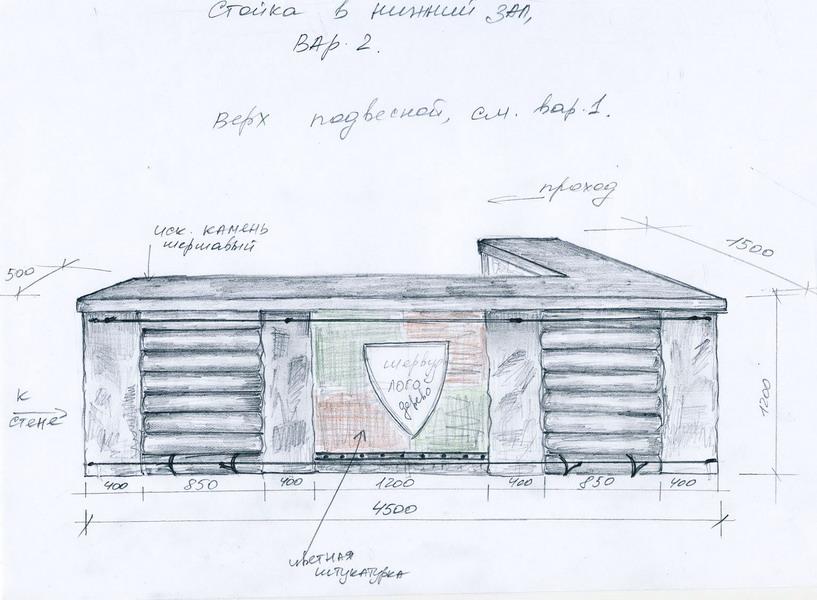 Стойка в нижний зал,
вар. 2.
Верх подвесной, см. вар. 1.
проход
иск. камень
шершавый
500
1500
лого
дерево
1200
к
стене
400 850 400 1200 400 850 400
4500
цветная
штукатурка